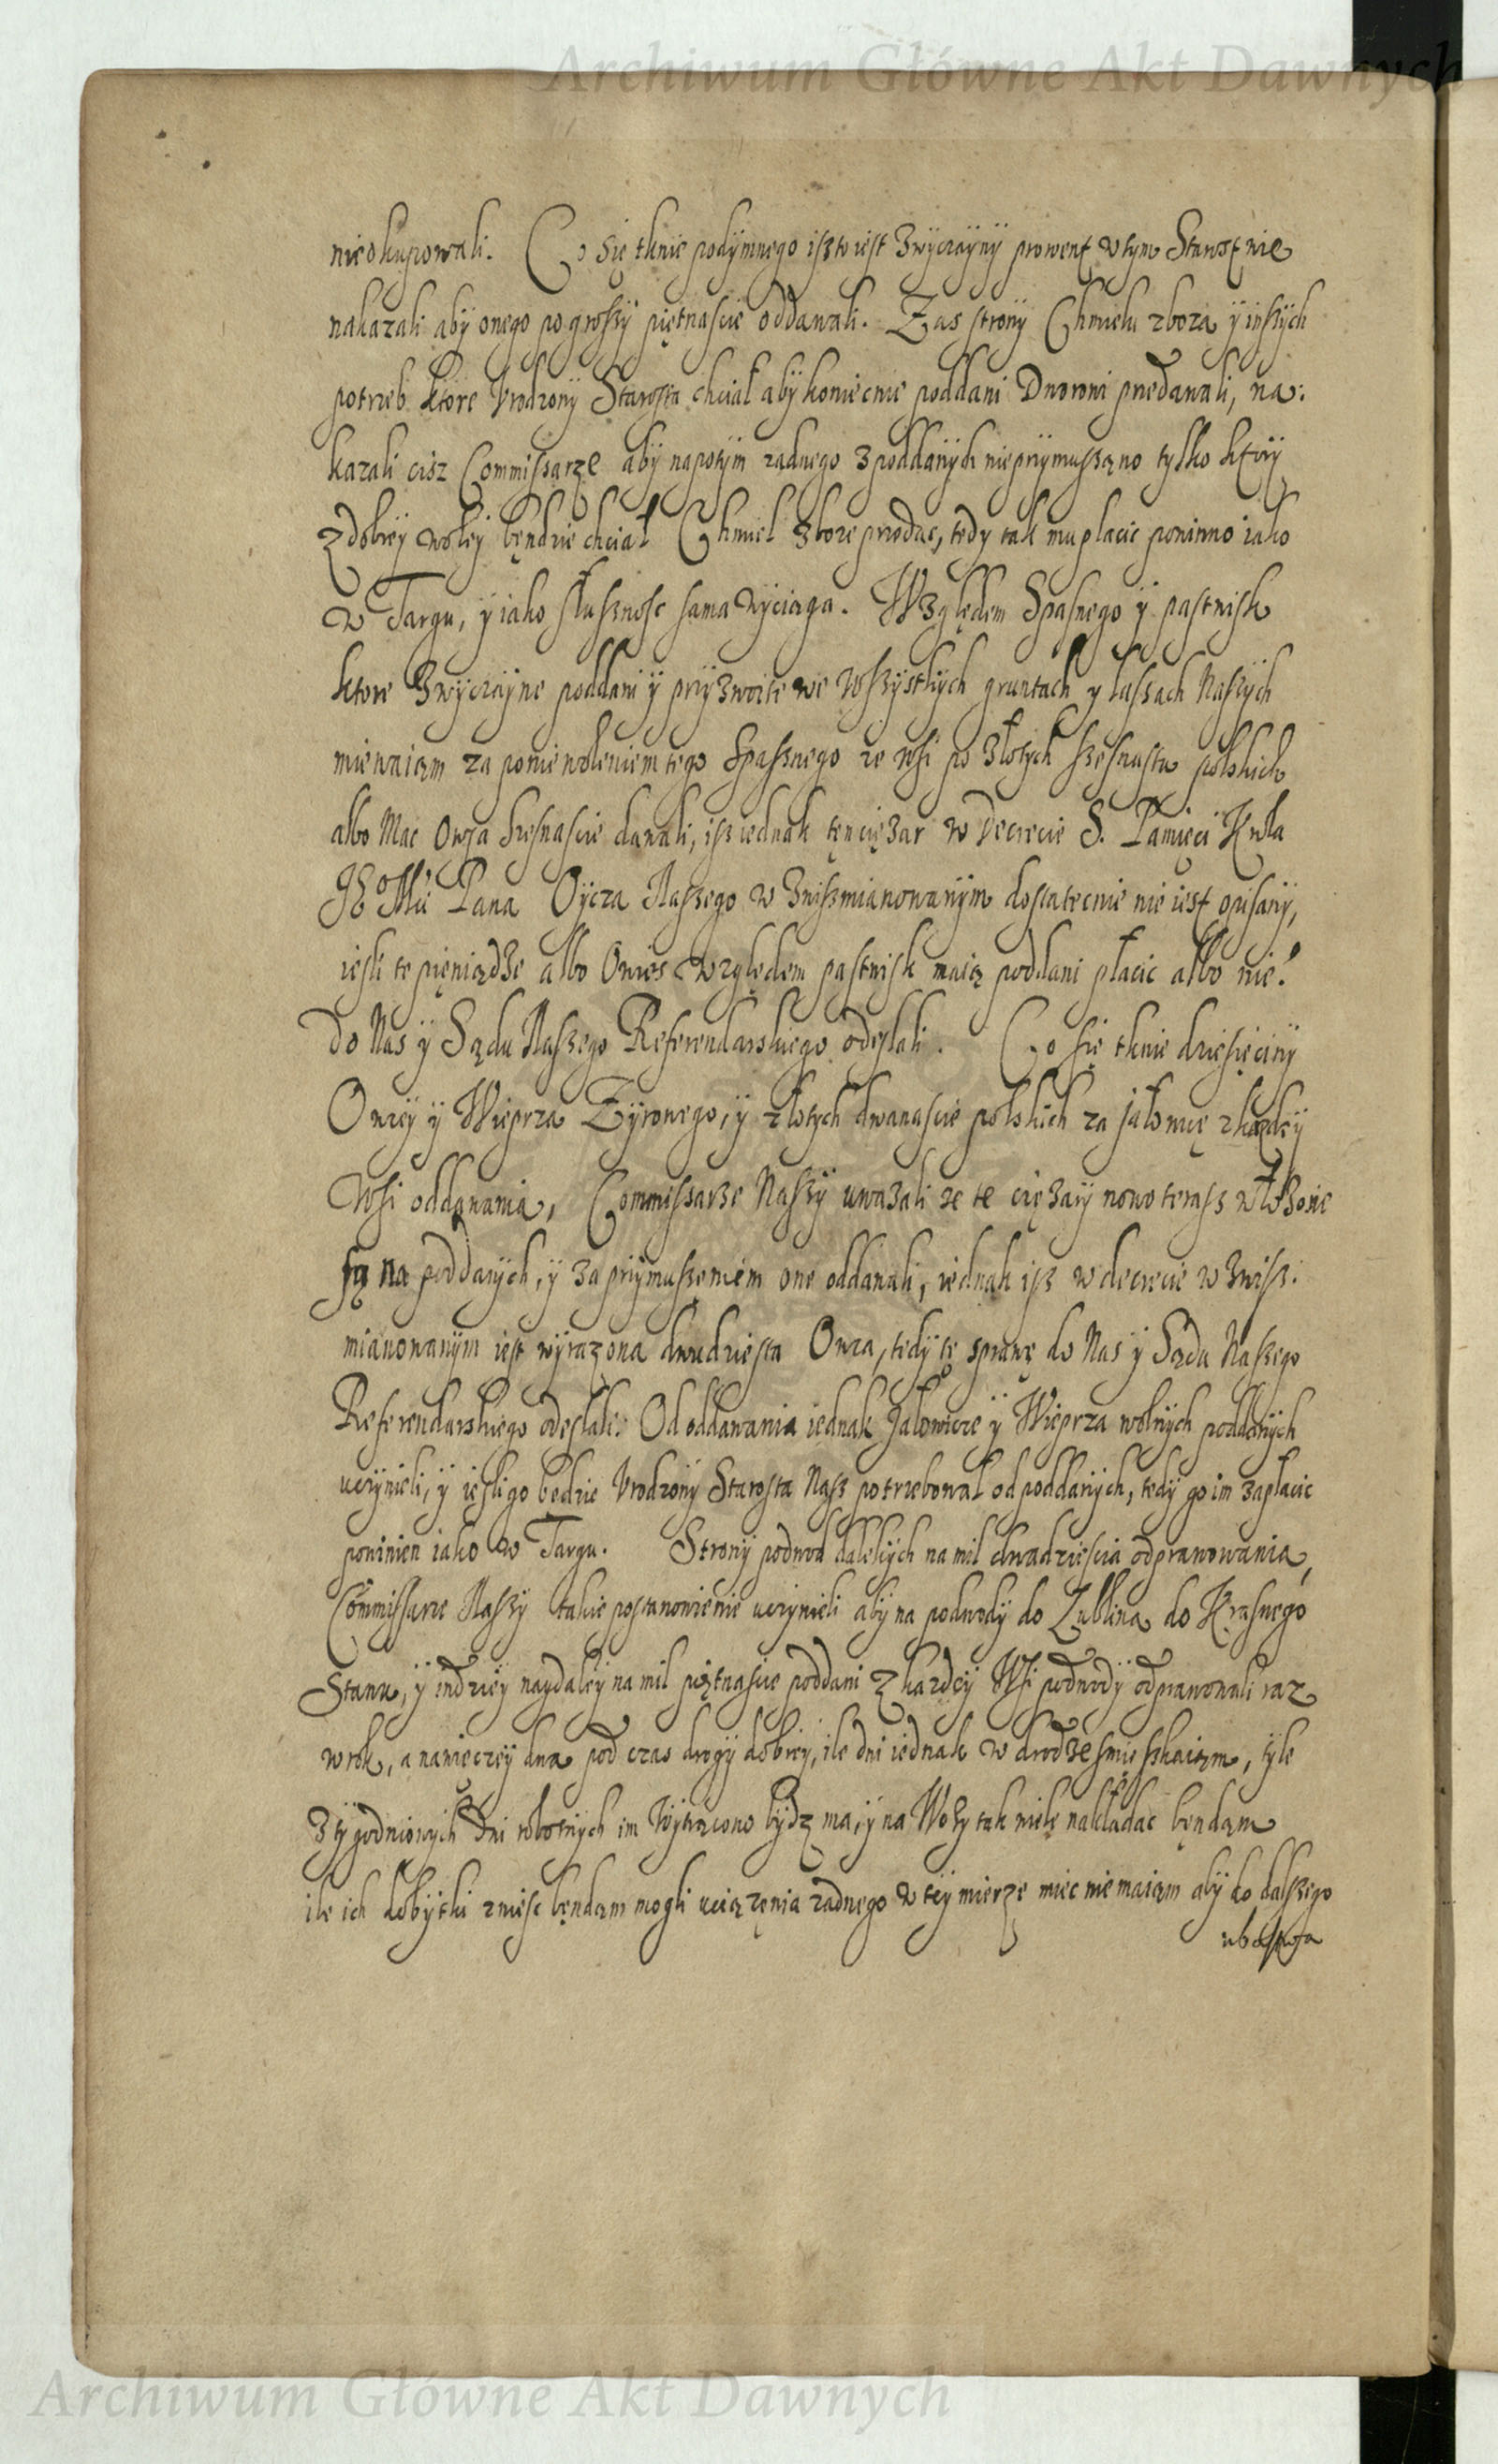 Archiwum Główne Akt Dawnych
nieokupowali. Co się tknie podymnego isz to iest zwyczayny prowent w tym Starostwie
nakazali aby onego po groszy piętnascie oddawali. Zas strony Chmielu zboza y inszych
potrzeb ktore Vrodzony Starosta chciał aby koniecnie poddani Dworowi przedawali, na:
kazali cisz Commissarze aby napotym zadnego z poddanych nieprzymuszano tylko ktory
z dobrey woley będzie chciał Chmiel zboze przodac, tedy tak mu płacic powinno iako
w Targu, y iako słusznosc sama wyciąga. Względem Spasnego y pastwisk
ktore zwyczayne poddani y przyzwoite we wszystkych gruntach y lassach Naszych
miewaiąm za poniewoleniem tego Spasznego ze wsi po złotych szesnastu polskich
albo Mac Owsa szesnascie dawali, isz iednak ten cięzar w Decrecie S. Pamięci Krola
JE° Mci Pana Oyca Naszego w zwiszmianowanym dostatecnie nie iest opisany,
iesli te pieniądze albo Owies względem pastwisk maią poddani płacic albo nie?
do Nas y Sądu Naszego Referendarskiego odesłali. Co się tknie dziesięciny
Owczey y Wieprza Zyrowego, y złotych dwanascie polskich za jałowicę z kazdey
Wsi oddawania, Commissarze Naszy uwazali ze te cięzary nowo terasz włozone
są na poddanych, y za przymuszeniem one oddawali, iednak isz w decrecie w zwisz:
mianowanym iest wyrazona dwudziesta Owca, tedy tę sprawę do Nas y Sądu Naszego
Referendarskiego odesłali: Od oddawania iednak Jałowice y Wieprza wolnych poddanych
uczynieli, y iesli go będzie Vrodzony Starosta Nasz potrzebował od poddanych, tedy go im zapłacic
powinien iako w Targu. Strony podwod dalekych na mil dwadziescia odprawowania,
Commissarze Naszy takie postanowienie uczynieli aby na podwody do Lublina do Krasnego
Stawu, y indziey naydaley na mil piętnascie poddani z kazdey Wsi podwody odprawowali raz
w rok, a nawięczey dwa pod czas drogy dobrey, ile dni iednak w drodze zmieszkaiąm, tyle
z tygodniowych dni robotnych im wytrącono bydz ma, y na Wozy tak wiele nakładac będąm
ile ich dobytki zniesc będąm mogli uciązenia zadnego w tey mierze miec nie maiąm aby do dalszego
ubostwa
Archiwum Główne Akt Dawnych